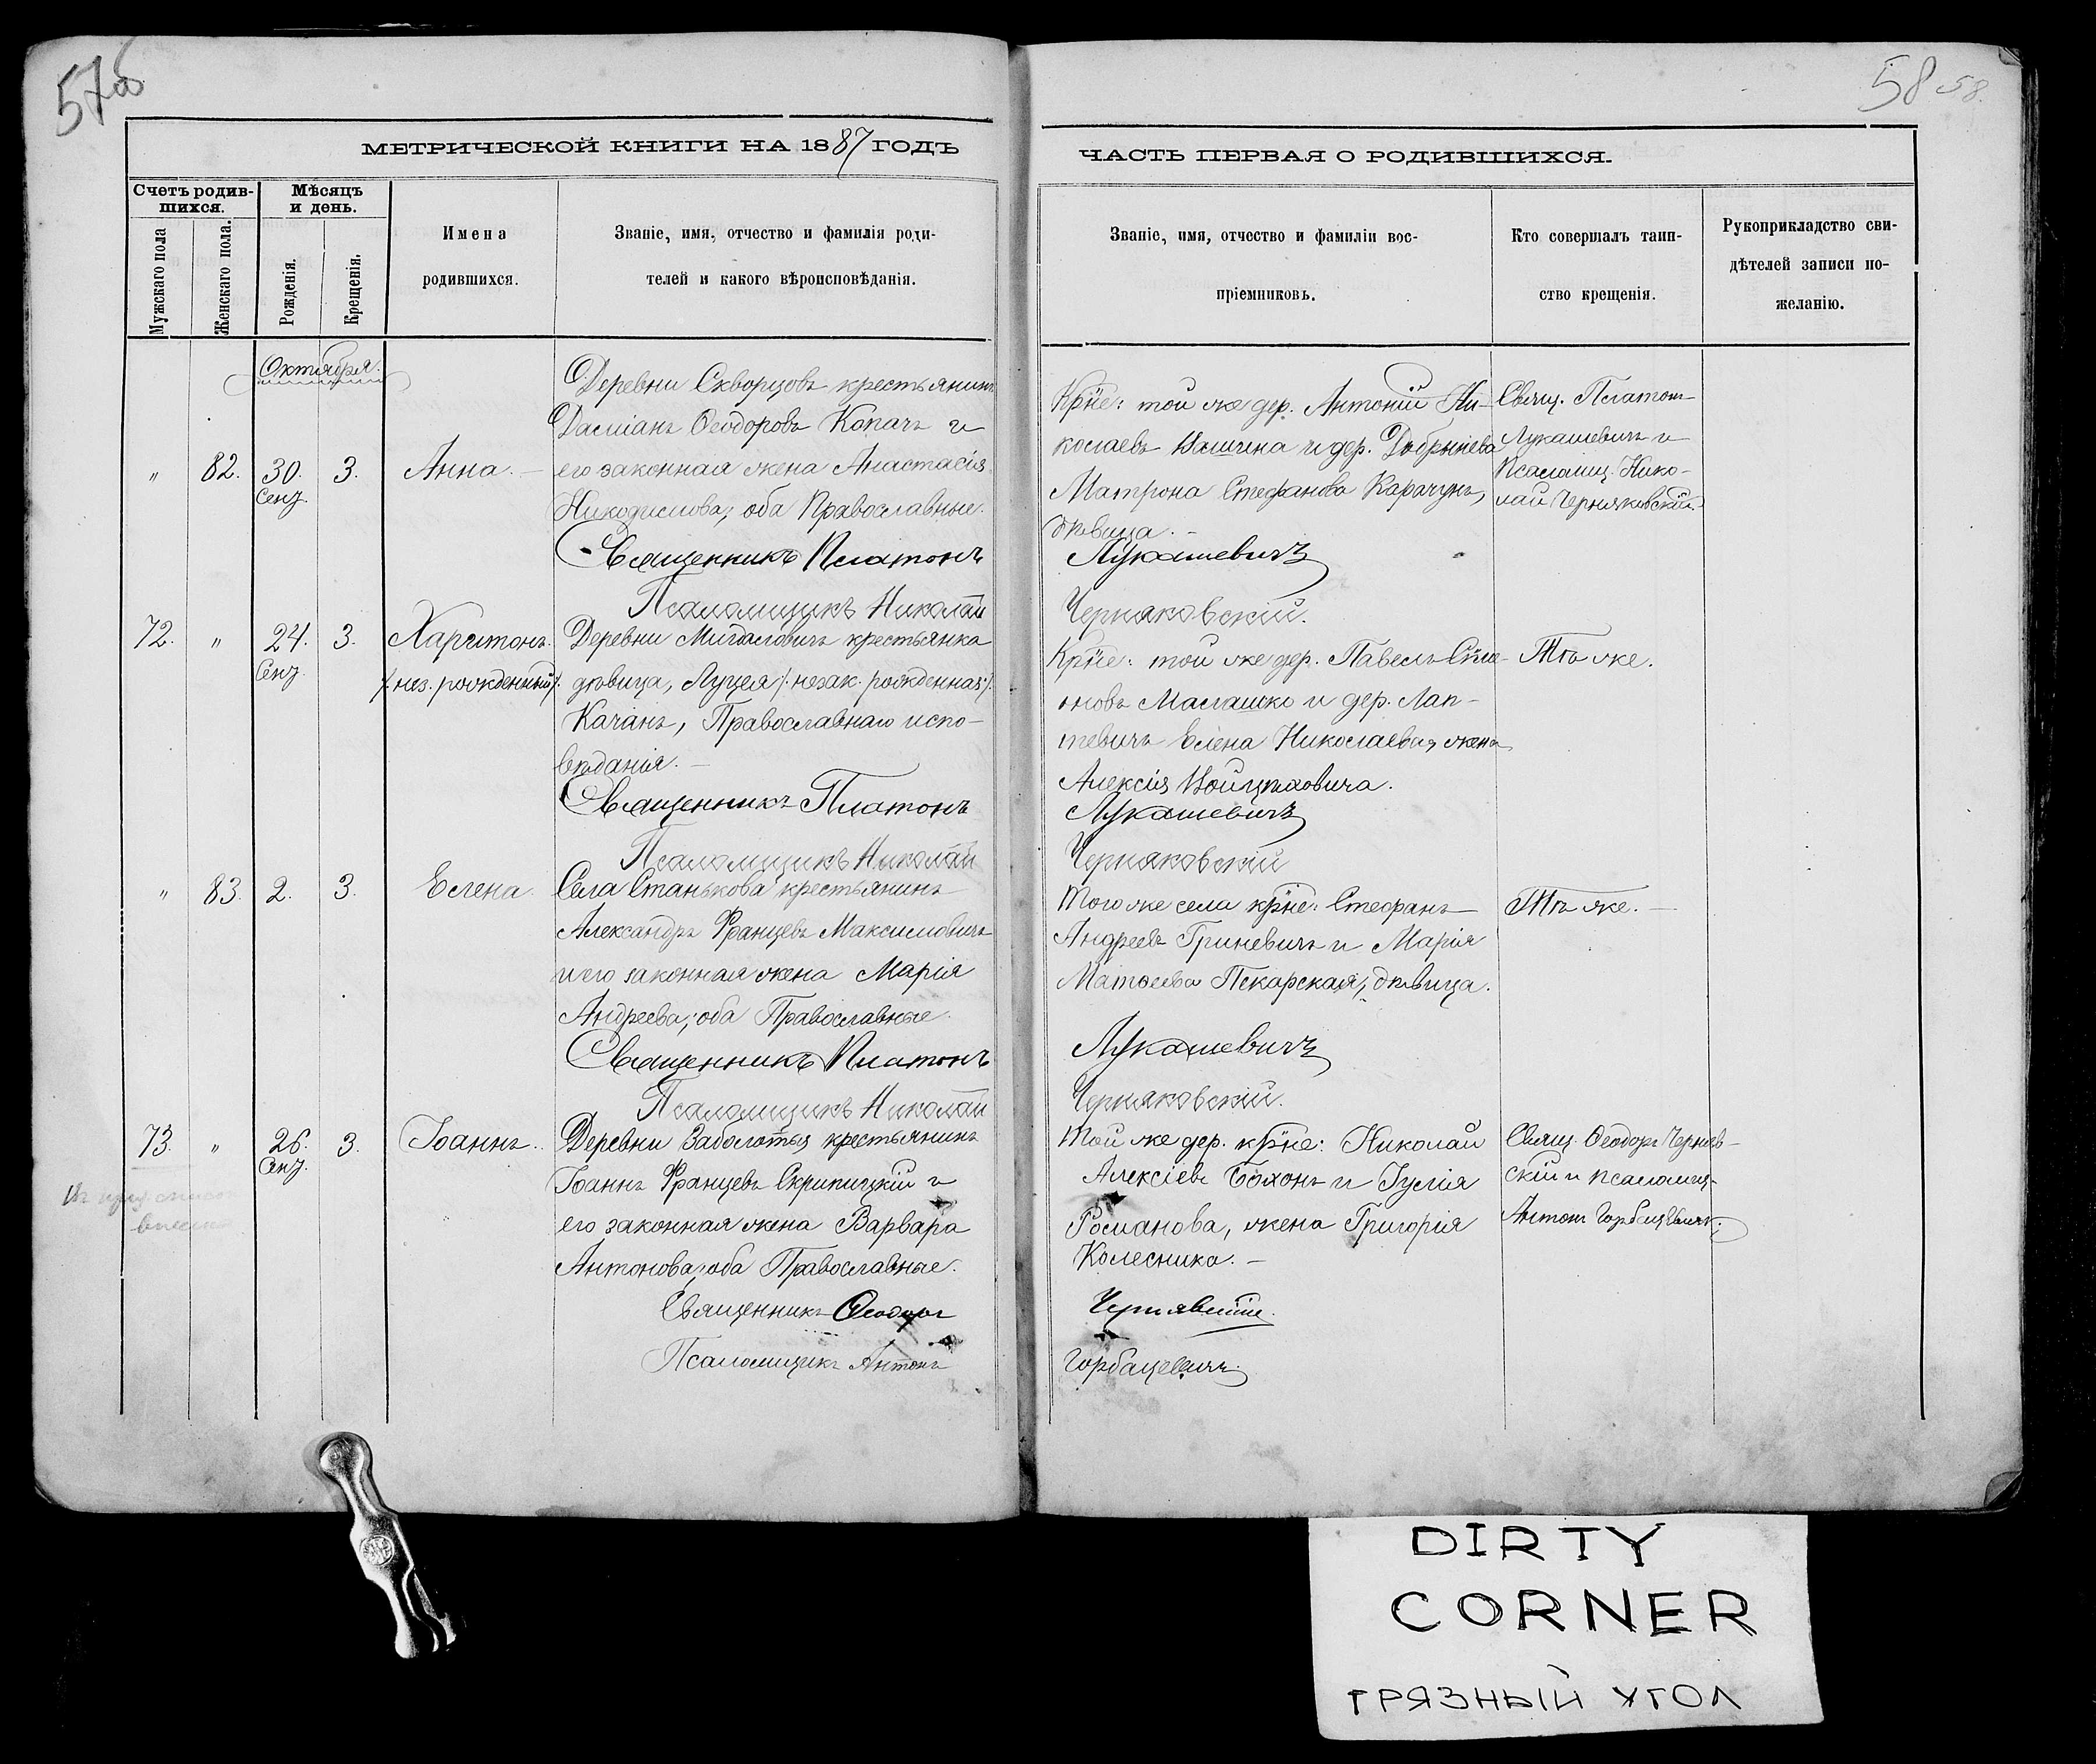 57об
58 58.
МЕТРИЧЕСКОЙ КНИГИ НА 1887 ГОДЪ
ЧАСТЬ ПЕРВАЯ О РОДИВШИХСЯ.
Счетъ родив-
шихся.
Мѣсяцъ
и день.
Мужскаго пола
Женскаго пола.
Рожденія.
Крещенія.
Имена
родившихся.
Званіе, имя, отчество и фамилія роди-
телей и какого вѣроисповѣданія.
Званіе, имя, отчество и фамиліи вос-
пріемниковъ.
Кто совершалъ таин-
ство крещенія.
Рукоприкладство сви-
дѣтелей записи по-
желанію.
Октября.
„ 82. 30. Сен. 3. Анна. —
Деревни Скворцовъ крестьянинъ
Даміанъ Ѳеодоровъ Копачъ и
его законная жена Анастасія
Никодимова; оба Православные.
Священникъ Платонъ
Псаломщикъ Николай
Крне: той же дер. Антоній Ни-
колаевъ и дер. Добринева
Матрона Стефанова Карачунъ,
дѣвица. —
Лукашевичъ
Черняковскій.
Свящ. Платонъ
Лукашевичъ и
Псаломщ. Нико-
лай Черняковскій.
72. „ 24. Сен. 3. Харитонъ.
/: нез. рожденный :/
Деревни Мигдаловичъ крестьянка
дѣвица, Луцея /: незак. рожденная :/
Качанъ, Православнаго испо-
вѣданія. —
Священникъ Платонъ
Псаломщикъ Николай
Крне: той же дер. Павелъ Сіме-
оновъ Малашко и дер. Лап-
тевичъ Елена Николаева, жена
Алексія Войцѣховича.
Лукашевичъ
Черняковскій
Тѣ же.
„ 83. 2. 3. Елена.
Села Станькова крестьянинъ
Александръ Францевъ Максимовичъ
и его законная жена Марія
Андреева; оба Православные.
Священникъ Платонъ
Псаломщикъ Николай
Того же села крне: Стефанъ
Андреевъ Гриневичъ и Марія
Матѳеева Пекарская, дѣвица.
Лукашевичъ
Черняковскій.
Тѣ же. —
73. „ 26. Сен. 3. Іоаннъ.
Деревни Заболотья крестьянинъ
Іоаннъ Францевъ Скрипицкій и
его законная жена Варвара
Антонова; оба Православные.
Священникъ Ѳеодоръ
Псаломщикъ Антонъ
Той же дер. крне: Николай
Алексіевъ Бохонъ и Іулія
Романова, жена Григорія
Колесника. —
Чернявскій.
Горбацевичъ.
Свящ. Ѳеодоръ Черняв-
скій и псаломщ.
Антонъ Горбацевичъ.
DIRTY
CORNER
ГРЯЗНЫЙ УГОЛ